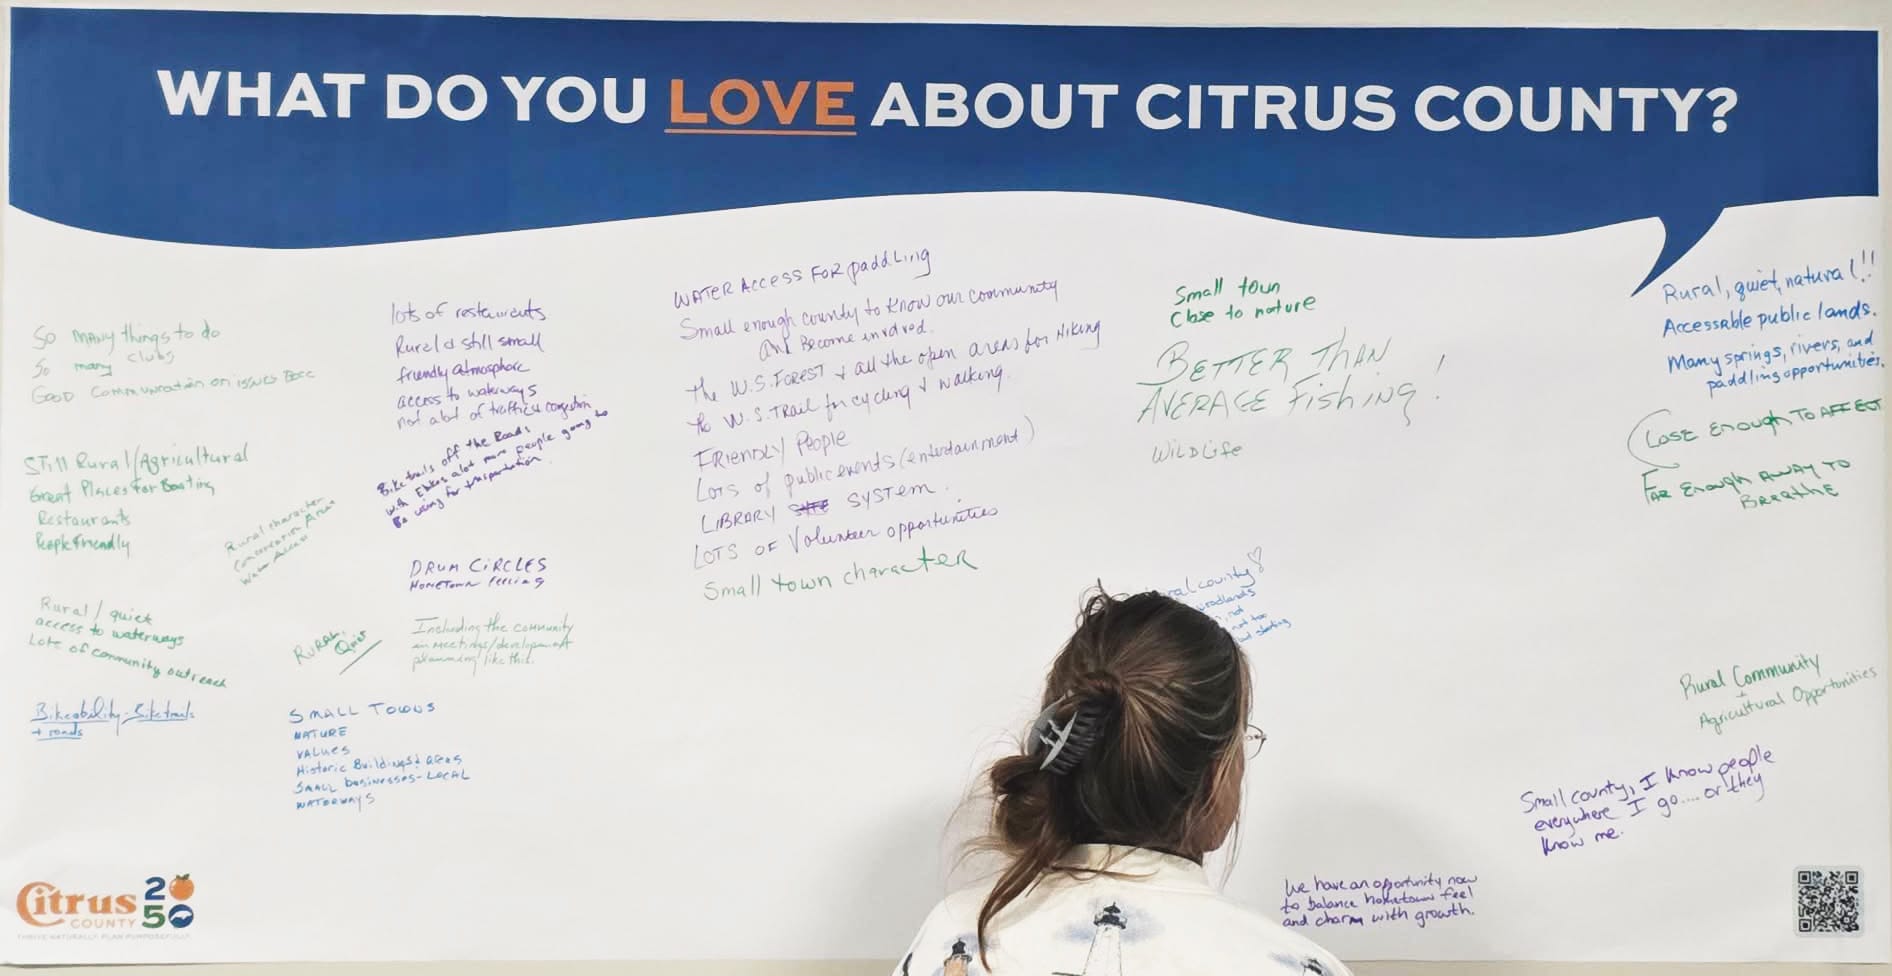 WHAT DO YOU LOVE ABOUT CITRUS COUNTY?
So many things to do
So many clubs
Good Communication on issues BOCC
Still Rural/Agricultural
Great Places For Boating
Restaurants
People Friendly
Rural character
Conservation Areas
Water Access
Rural / quiet
access to waterways
Lots of community outreach
Bikeability - Bike trails
+ roads
lots of restaurants
Rural & still small
friendly atmosphere
access to waterways
not alot of traffic & congestion
Bike trails off the Roads
with Ebikes alot more people going to
Be using for transportation.
DRUM CIRCLES
HOMETOWN feeling
RURAL,
Quiet
Including the community
in meetings/development
planning like this.
SMALL TOWNS
NATURE
VALUES
Historic Buildings & areas
SMALL businesses - LOCAL
WATERWAYS
WATER ACCESS FOR paddLing
Small enough county to know our community
and Become involved.
the W.S. FOREST + all the open areas for Hiking
the W.S. TRail for cycling + walking.
FRIENDLY PEOPLE
LOTS of public events (entertainment)
LIBRARY SYSTEM.
LOTS OF Volunteer opportunities
Small town character
Small town
Close to nature
BETTER THAN
AVERAGE Fishing!
WildLife
county
woodlands
not
not too
Rural, quiet, natural!!
Accessable public lands.
Many springs, rivers, and
paddling opportunities.
Close Enough To AFFECT
Far Enough AWAY TO
BREATHE
Rural Community
+
Agricultural Opportunities
Small county, I know people
everywhere I go.... or they
know me.
We have an opportunity now
to balance hometown feel
and charm with growth.
Citrus
COUNTY
2050
THRIVE NATURALLY. PLAN PURPOSEFULLY.